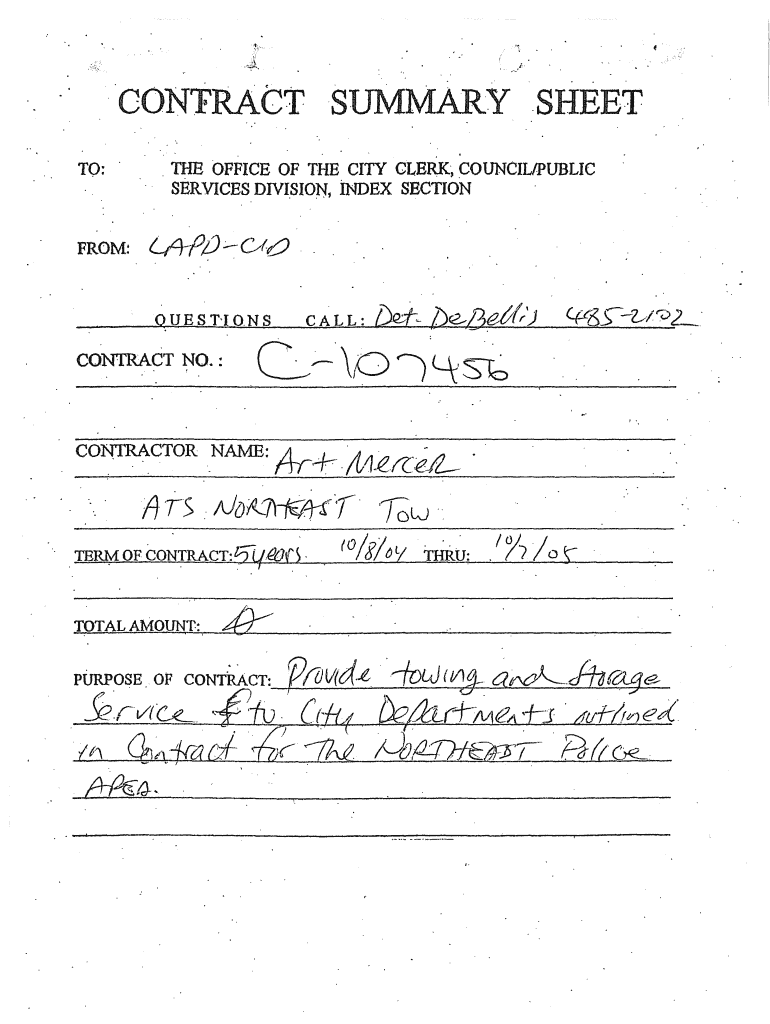 CONTRACT SUMMARY SHEET
TO: THE OFFICE OF THE CITY CLERK, COUNCIL/PUBLIC
SERVICES DIVISION, INDEX SECTION
FROM: LAPD-CID
QUESTIONS CALL: Det. DeBellis 485-2102
CONTRACT NO.: C-107456
CONTRACTOR NAME: Art Mercer
ATS NORTHEAST Tow
TERM OF CONTRACT: 5 years 10/8/04 THRU: 10/7/05
TOTAL AMOUNT:
PURPOSE OF CONTRACT: Provide towing and Storage
Service to City Departments outlined
in Contract for The NORTHEAST Police
AREA.